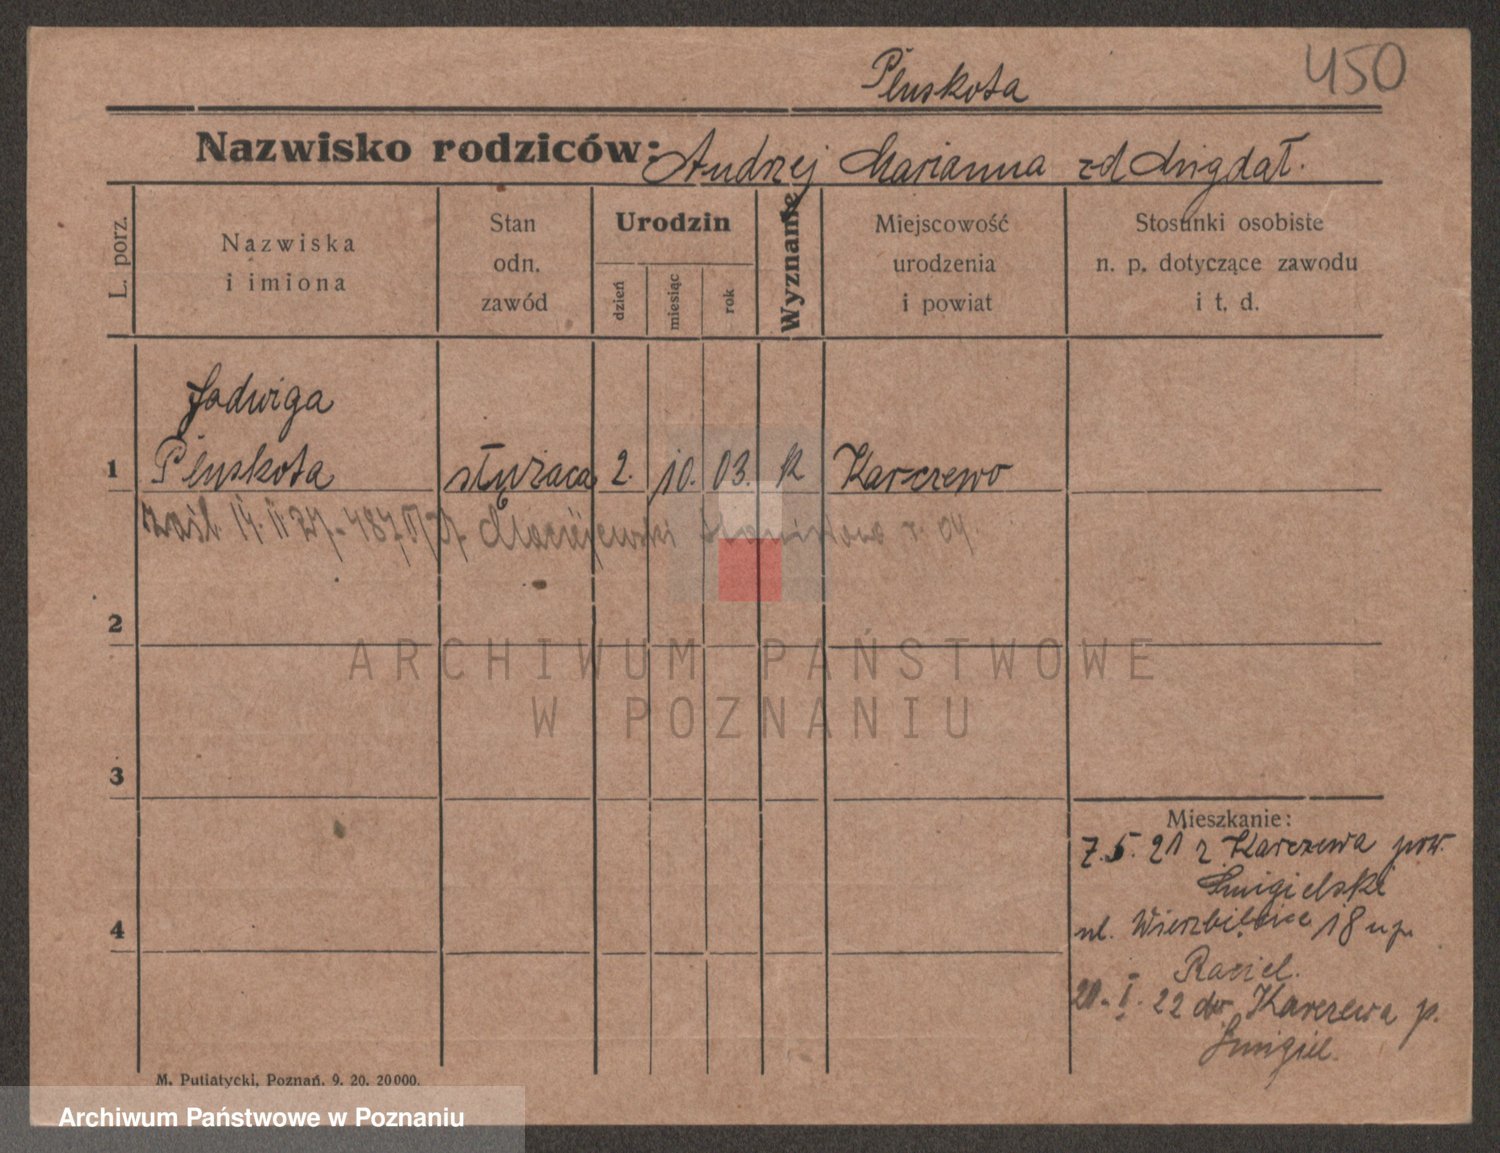 Pluskota
450
Nazwisko rodziców: Andrzej Marianna zd Migdał.
L. porz.
Nazwiska
i imiona
Stan
odn.
zawód
Urodzin
dzień
miesiąc
rok
Wyznanie
Miejscowość
urodzenia
i powiat
Stosunki osobiste
n. p. dotyczące zawodu
i t. d.
Jadwiga
1 Pluskota służaca 2. 10. 03. k Karczewo
zaśl. Maciejewski Stanisław r. 04
2
ARCHIWUM PAŃSTWOWE
W POZNANIU
3
Mieszkanie:
7. 5. 21 z Karczewa pow.
Śmigielski
4
ul. Wierzbięcice 18 u p.
Raciel.
20. I. 22 do Karczewa p.
Śmigiel.
M. Putiatycki, Poznań. 9. 20. 20000.
Archiwum Państwowe w Poznaniu